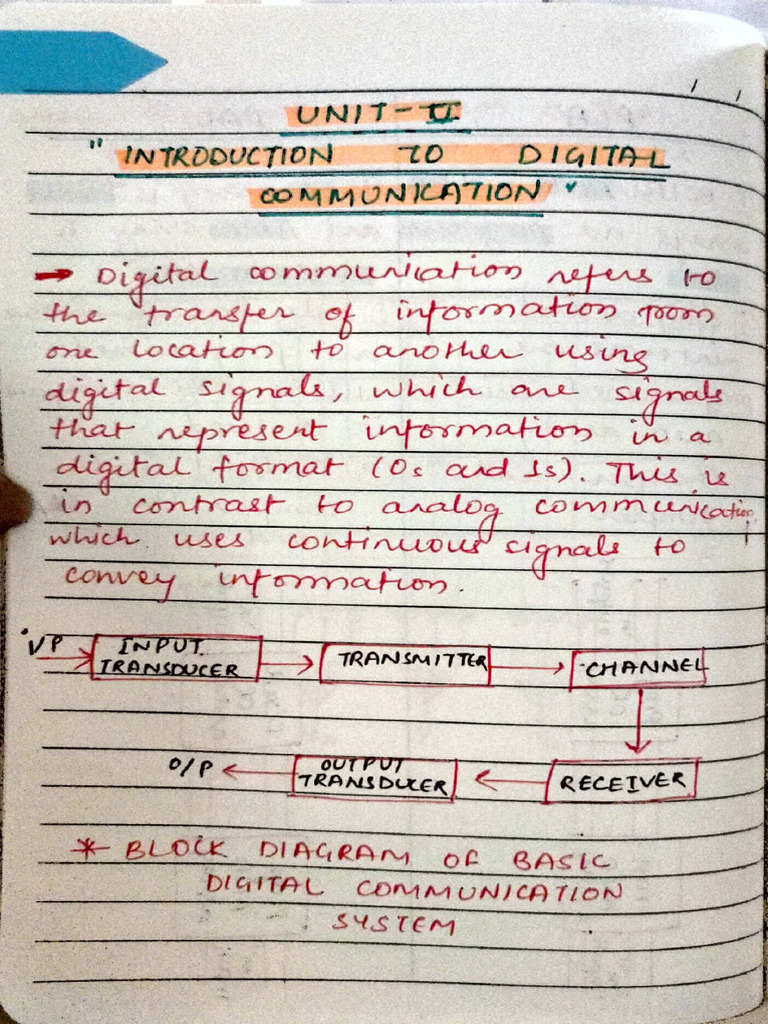 UNIT-II
"INTRODUCTION TO DIGITAL
COMMUNICATION"
→ Digital communication refers to
the transfer of information from
one location to another using
digital signals, which are signals
that represent information in a
digital format (0s and 1s). This is
in contrast to analog communication,
which uses continuous signals to
convey information.
I/P → INPUT TRANSDUCER → TRANSMITTER → CHANNEL
O/P ← OUTPUT TRANSDUCER ← RECEIVER
* BLOCK DIAGRAM OF BASIC
DIGITAL COMMUNICATION
SYSTEM